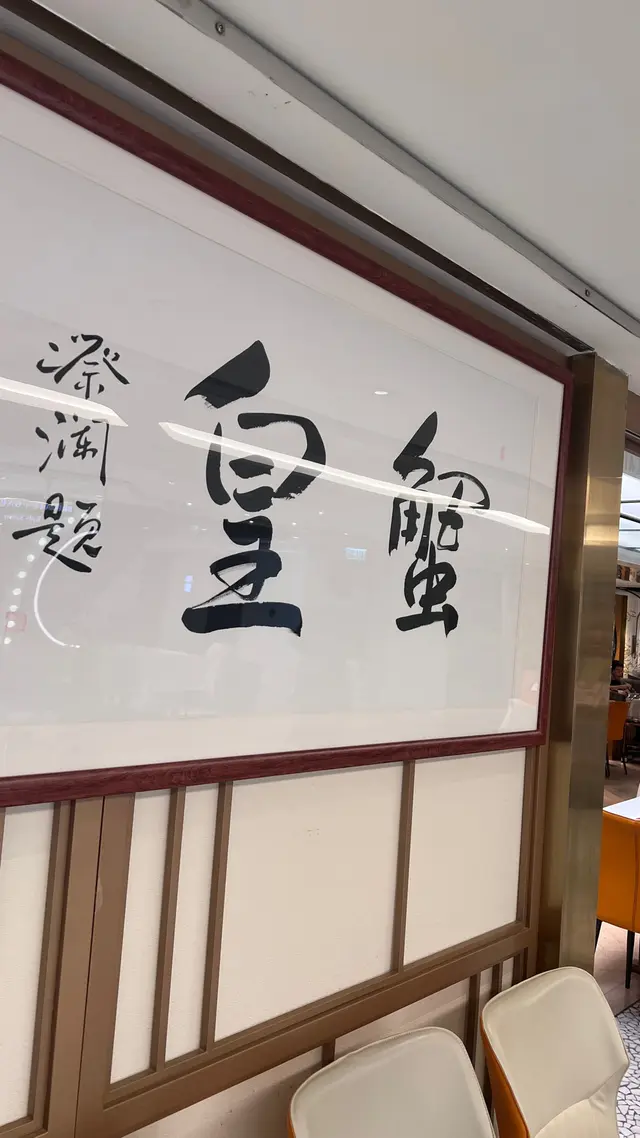 蟹皇
蔡瀾題